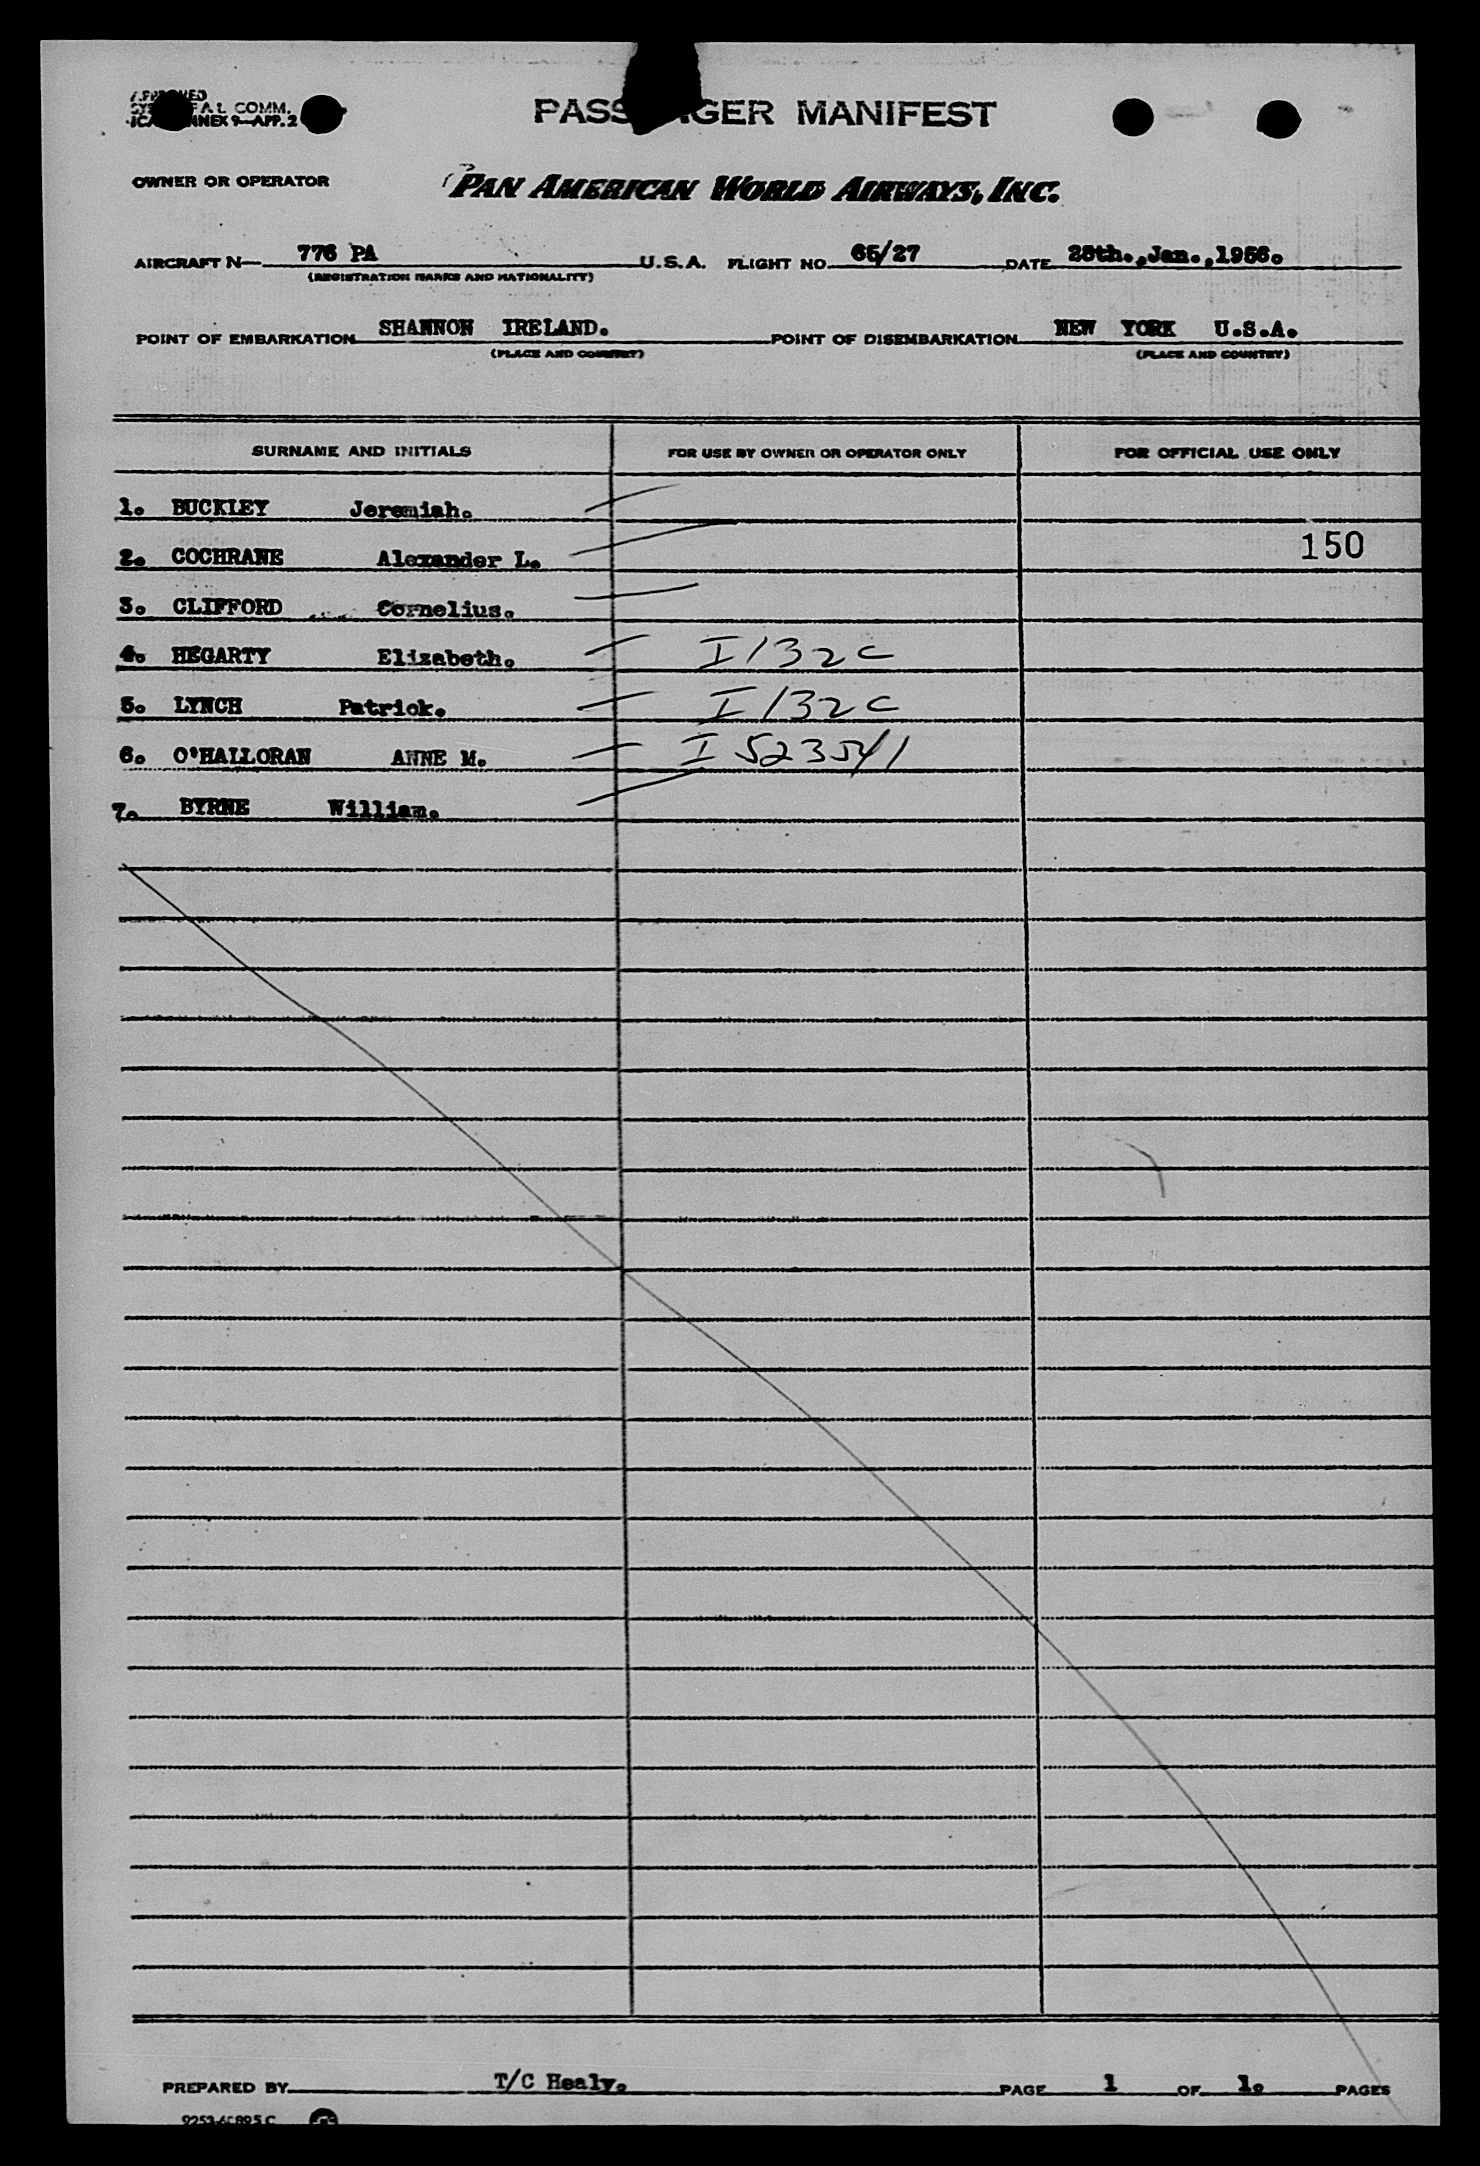 PASS GER MANIFEST
A.L. COMM.
ANNEX 9—APP. 2
OWNER OR OPERATOR PAN AMERICAN WORLD AIRWAYS, INC.
AIRCRAFT N— 776 PA U.S.A. FLIGHT NO. 65/27 DATE 28th., Jan., 1956.
(REGISTRATION MARKS AND NATIONALITY)
POINT OF EMBARKATION SHANNON IRELAND. POINT OF DISEMBARKATION NEW YORK U.S.A.
(PLACE AND COUNTRY) (PLACE AND COUNTRY)
SURNAME AND INITIALS FOR USE BY OWNER OR OPERATOR ONLY FOR OFFICIAL USE ONLY
1. BUCKLEY Jeremiah.
2. COCHRANE Alexander L. 150
3. CLIFFORD Cornelius.
4. HEGARTY Elizabeth. I 132 C
5. LYNCH Patrick. I 132 C
6. O'HALLORAN ANNE M. I 523541
7. BYRNE William.
PREPARED BY T/C Healy. PAGE 1 OF 1. PAGES